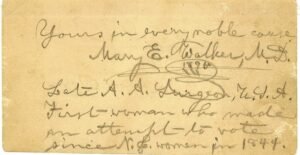 Yours in every noble cause
Mary E. Walker, M.D.
1890
Let A. A. Surgeon, U.S.A.
First woman who made
an attempt to vote
since N.J. women in 1844.